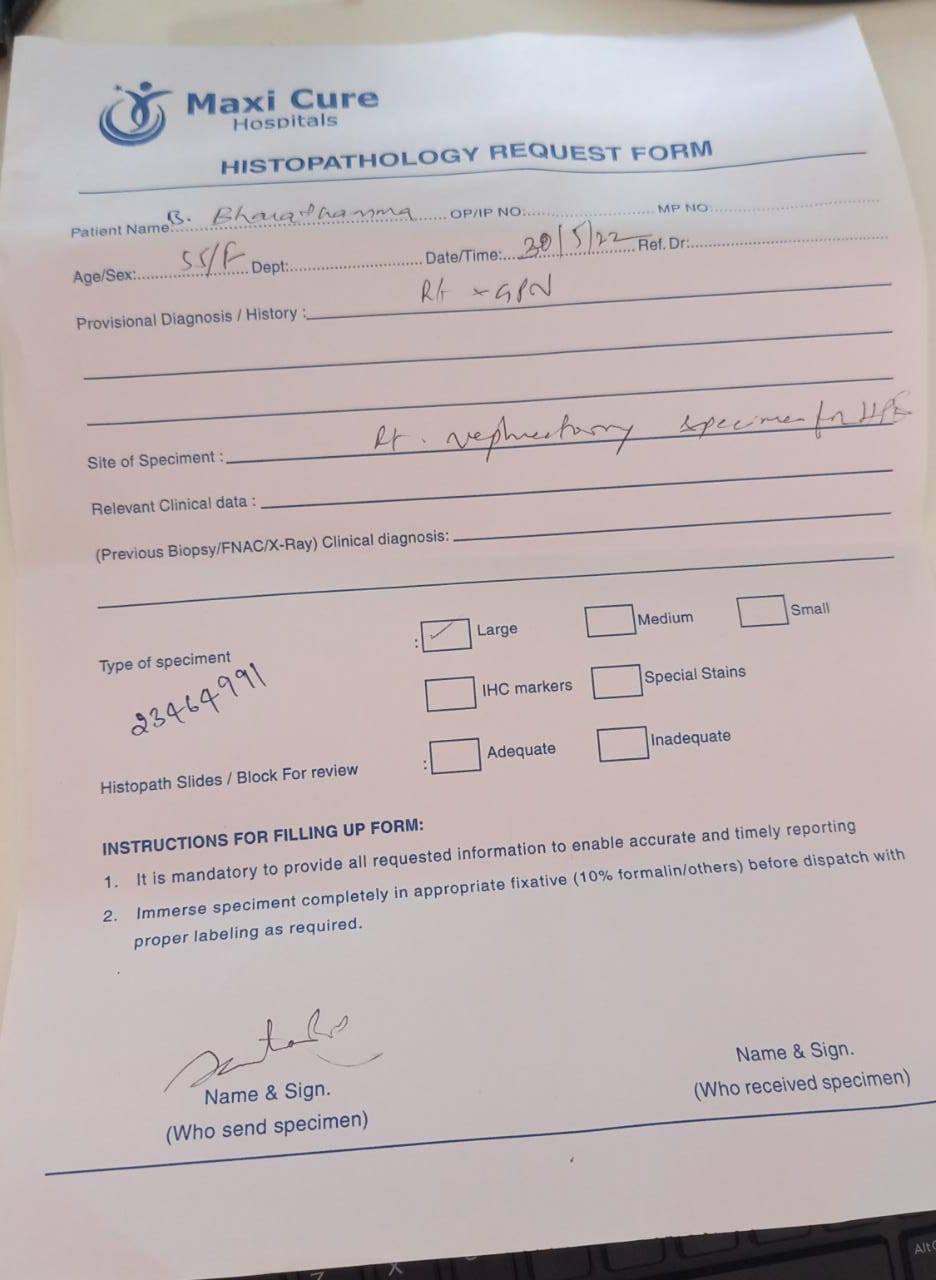 Maxi Cure
Hospitals
HISTOPATHOLOGY REQUEST FORM
Patient Name: B. Bharathamma OP/IP NO: MP NO:
Age/Sex: 55/F Dept: Date/Time: 30/5/22 Ref. Dr:
Provisional Diagnosis / History : Rt
Site of Speciment : Rt. nephrectomy specimen for HPE
Relevant Clinical data :
(Previous Biopsy/FNAC/X-Ray) Clinical diagnosis:
Type of speciment : ✓ Large Medium Small
23464991
IHC markers Special Stains
Histopath Slides / Block For review : Adequate Inadequate
INSTRUCTIONS FOR FILLING UP FORM:
1. It is mandatory to provide all requested information to enable accurate and timely reporting
2. Immerse speciment completely in appropriate fixative (10% formalin/others) before dispatch with
proper labeling as required.
Name & Sign.
(Who send specimen)
Name & Sign.
(Who received specimen)